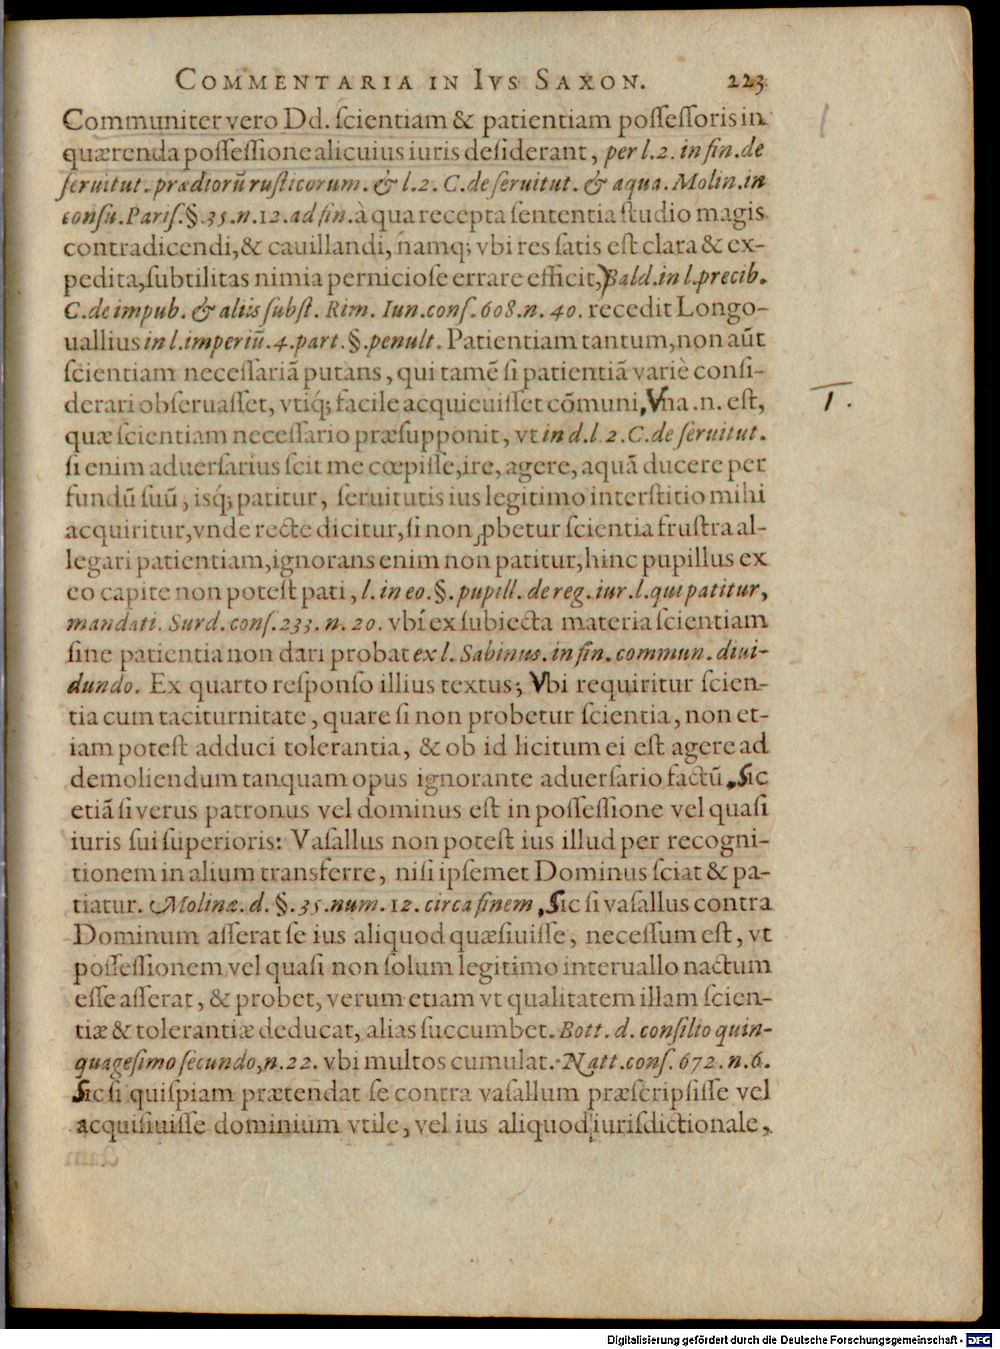 COMMENTARIA IN IVS SAXON. 223
Communiter vero Dd. ſcientiam & patientiam poſſeſſoris in
quærenda poſſeſſione alicuius iuris deſiderant, per l. 2. in fin. de
ſeruitut. prædiorū ruſticorum. & l. 2. C. de ſeruitut. & aqua. Molin. in
conſu. Pariſ. §. 35. n. 12. ad fin. à qua recepta ſententia ſtudio magis
contradicendi, & cauillandi, namq; vbi res ſatis eſt clara & ex-
pedita, ſubtilitas nimia perniciose errare efficit, Bald. in l. precib.
C. de impub. & aliis ſubſt. Rim. Iun. conſ. 608. n. 40. recedit Longo-
uallius in l. imperiū. 4. part. §. penult. Patientiam tantum, non aūt
ſcientiam neceſſariā putans, qui tamē ſi patientiā variè conſi-
derari obſeruaſſet, vtiq́; facile acquieuiſſet cōmuni, Vna .n. eſt,
quæ ſcientiam neceſſario præſupponit, vt in d. l. 2. C. de ſeruitut.
ſi enim aduerſarius ſcit me cœpiſſe, ire, agere, aquā ducere per
fundū ſuū, iſq́; patitur, ſeruitutis ius legitimo interſtitio mihi
acquiritur, vnde recte dicitur, ſi non ꝓbetur ſcientia fruſtra al-
legari patientiam, ignorans enim non patitur, hinc pupillus ex
eo capite non poteſt pati, l. in eo. §. pupill. de reg. iur. l. qui patitur,
mandati. Surd. conſ. 233. n. 20. vbi ex ſubiecta materia ſcientiam
ſine patientia non dari probat ex l. Sabinus. in fin. commun. diui-
dundo. Ex quarto reſponſo illius textus; Vbi requiritur ſcien-
tia cum taciturnitate, quare ſi non probetur ſcientia, non et-
iam poteſt adduci tolerantia, & ob id licitum ei eſt agere ad
demoliendum tanquam opus ignorante aduerſario factū. Sic
etiā ſi verus patronus vel dominus eſt in poſſeſſione vel quaſi
iuris ſui ſuperioris: Vaſallus non poteſt ius illud per recogni-
tionem in alium transferre, niſi ipſemet Dominus ſciat & pa-
tiatur. Molinæ. d. §. 35. num. 12. circa finem, Sic ſi vaſallus contra
Dominum aſſerat ſe ius aliquod quæſiuiſſe, neceſſum eſt, vt
poſſeſſionem vel quaſi non ſolum legitimo interuallo nactum
eſſe aſſerat, & probet, verum etiam vt qualitatem illam ſcien-
tiæ & tolerantiæ deducat, alias ſuccumbet. Bott. d. conſilio quin-
quageſimo ſecundo, n. 22. vbi multos cumulat. Natt. conſ. 672. n. 6.
Sic ſi quiſpiam prætendat ſe contra vaſallum præſcripſiſſe vel
acquiſiuiſſe dominium vtile, vel ius aliquod iurisdictionale,
Digitalisierung gefördert durch die Deutsche Forschungsgemeinschaft - DFG